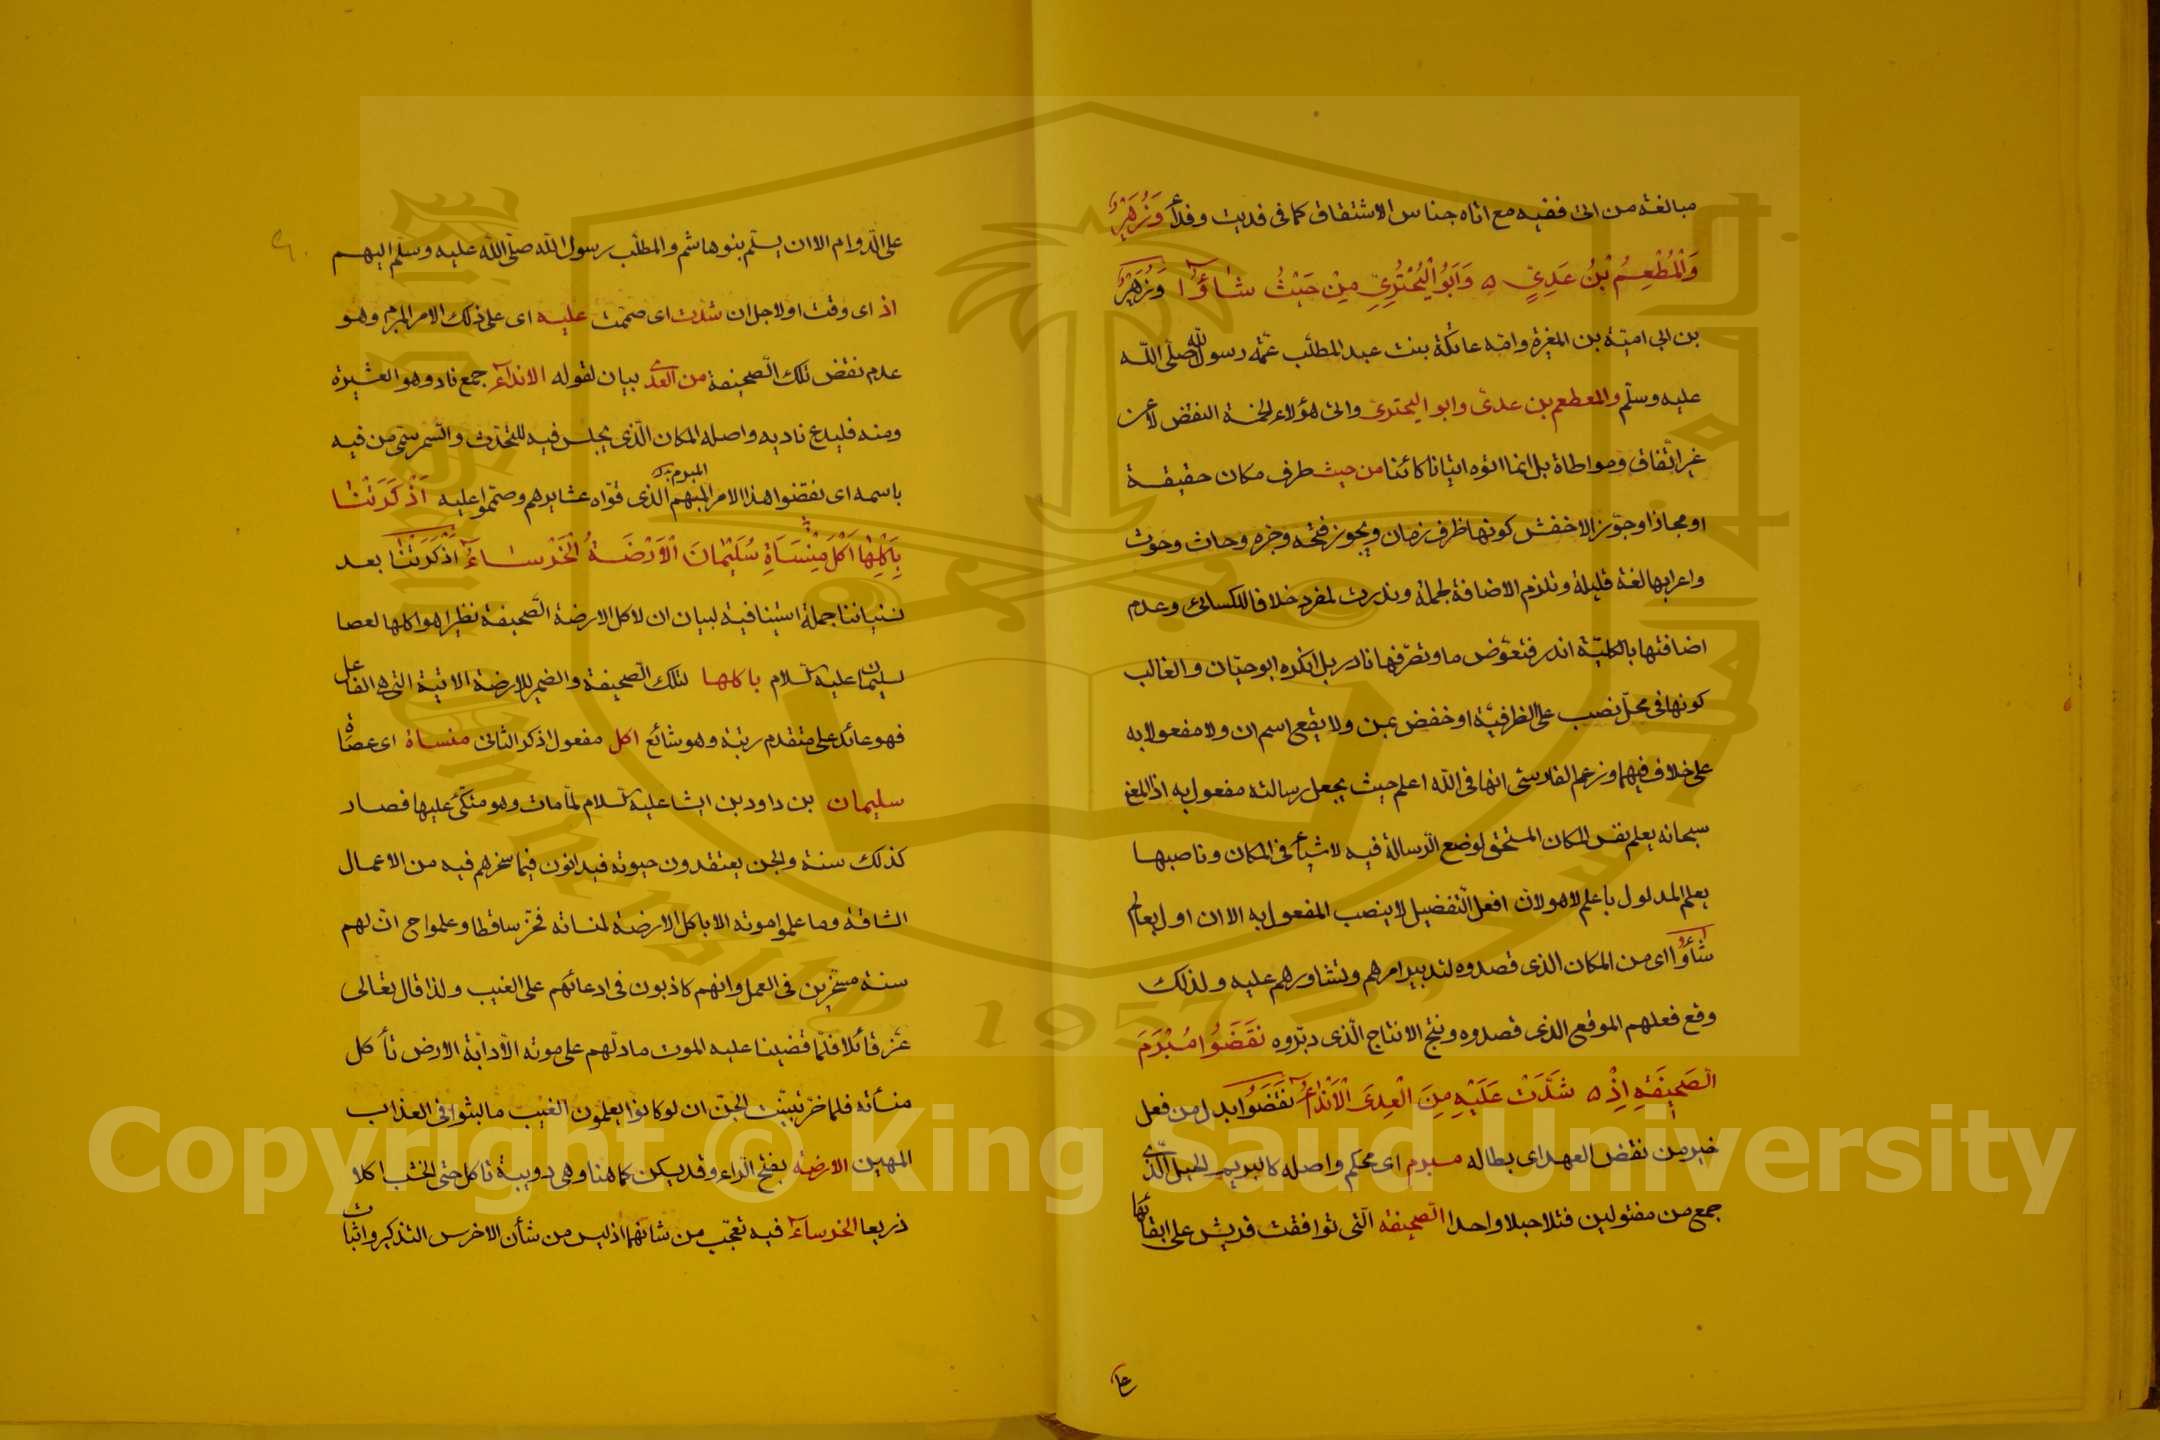 مبالغة من اتى ففيه مع اتاه جناس الاشتقاق كما فى فديت وفداء وَزُهَيْرٌ
وَالْمُطْعِمُ بْنُ عَدِيٍّ ه وَاَبُو الْبُحْتُرِيِّ مِنْ حَيْثُ شَاؤُا وَزُهَيْرٌ
بن ابى امية بن المغيرة وامه عاتكة بنت عبد المطلب عمة رسول الله صلّى اللّه
عليه وسلّم والمعطعم بن عدى وابو البحترى واتى هؤلاء الخمسة النقض لا عن
غير اتّفاق ومواطاة بل انما اتوه اتيانا كائنا من حيث ظرف مكان حقيقة
او مجازا وجوّز الاخفش كونها ظرف زمان ويجوز فتحه وجره وحاث وحوث
واعرابها لغة قليلة وتلزم الاضافة لجملة وندرت لمفرد خلافا للكسائى وعدم
اضافتها بالكليّة اندر فتعوّض ما وتصرّفها نادر بل انكره ابو حيّان والغالب
كونها فى محلّ نصب على الظرفيّة او خفض بمن ولا يقع اسم ان ولا مفعولا به
على خلاف فيهما وزعم الفارسى انها فى اللّه اعلم حيث يجعل رسالته مفعول به اذ المعنى
سبحانه يعلم نفس المكان المستحق لوضع الرّسالة فيه لا شيأ فى المكان وناصبها
يعلم المدلول باعلم لا هو لانّ افعل التّفضيل لا ينصب المفعول به الا ان اول بعالم
شاؤا اى من المكان الذى قصدوه لتدبير امرهم وتشاورهم عليه ولذلك
وقع فعلهم الموقع الذى قصدوه ونتج الانتاج الّذى دبّروه نَقَضُوا مُبْرَمَ
الصَّحِيفَةِ اِذْ ه شَدَّتْ عَلَيْهِ مِنَ الْعِدَى الْاَنْدَاءُ نَقَضُوا بدل من فعل
خير من نقض العهد اى بطاله مبرم اى محكم واصله كالبريم الحبل الّذى
جمع من مفتولين فتلا حبلا واحدا الصّحيفة الّتى توافقت قريش على ابقائها
على
على الدّوام الا ان يسلّم بنو هاشم والمطلّب رسول اللّه صلّى اللّه عليه وسلّم اليهم
اذ اى وقت او لاجل ان شدت اى صمّمت عليه اى على ذلك الامر المبرم وهو
عدم نقض تلك الصّحيفة من العدى بيان لقوله الانداء جمع ناد وهو العشيرة
ومنه فليدع ناديه واصله المكان الّذى يجلس فيه للتحدّث والسّمر سمّى من فيه
باسمه اى نقضوا هذا الامر المبهم المبرم الّذى قوّاه عشايرهم وصمّموا عليه اَذْكَرَتْنَا
بِاَكْلِهَا اَكْلَ مِنْسَاَةِ سُلَيْمَانَ الْاَرَضَةُ الْخَرْسَاءُ اَذْكَرَتْنَا بعد
نسياننا جملة استينافية لبيان ان لاكل الارضة الصّحيفة نظيرا هو اكلها لعصا
سليمان عليه السّلام باكلها لتلك الصّحيفة والضمير للارضة الاتية التى هى الفاعل
فهو عائد على متقدم رتبة وهو شائع اكل مفعول اذكر الثانى منسأة اى عصاة
سليمان بن داود بن ايشا عليه السّلام لمّا مات وهو متكّئ عليها فصار
كذلك سنة والجن يعتقدون حيوته فيدابون فيما سخرهم فيه من الاعمال
الشاقة وما علموا موته الا باكل الارضة لمنساته فخرّ ساقطا وعلموا ح انّ لهم
سنة مسخّرين فى العمل وانهم كاذبون فى ادعائهم على الغيب ولذا قال تعالى
عزّ قائلا فلمّا قضينا عليه الموت ما دلّهم على موته الّا دابّة الارض تأكل
منسأته فلما خرّ تبيّنت الجنّ ان لو كانوا يعلمون الغيب ما لبثوا فى العذاب
المهين الارضة بفتح الرّاء وقد يسكن كما هنا وهى دويبة تاكل حتى الخشب اكلا
ذريعا الخرساء فيه تعجّب من شانها اذ ليس من شأن الاخرس التذكير واثبات
Copyright © King Saud University
1957